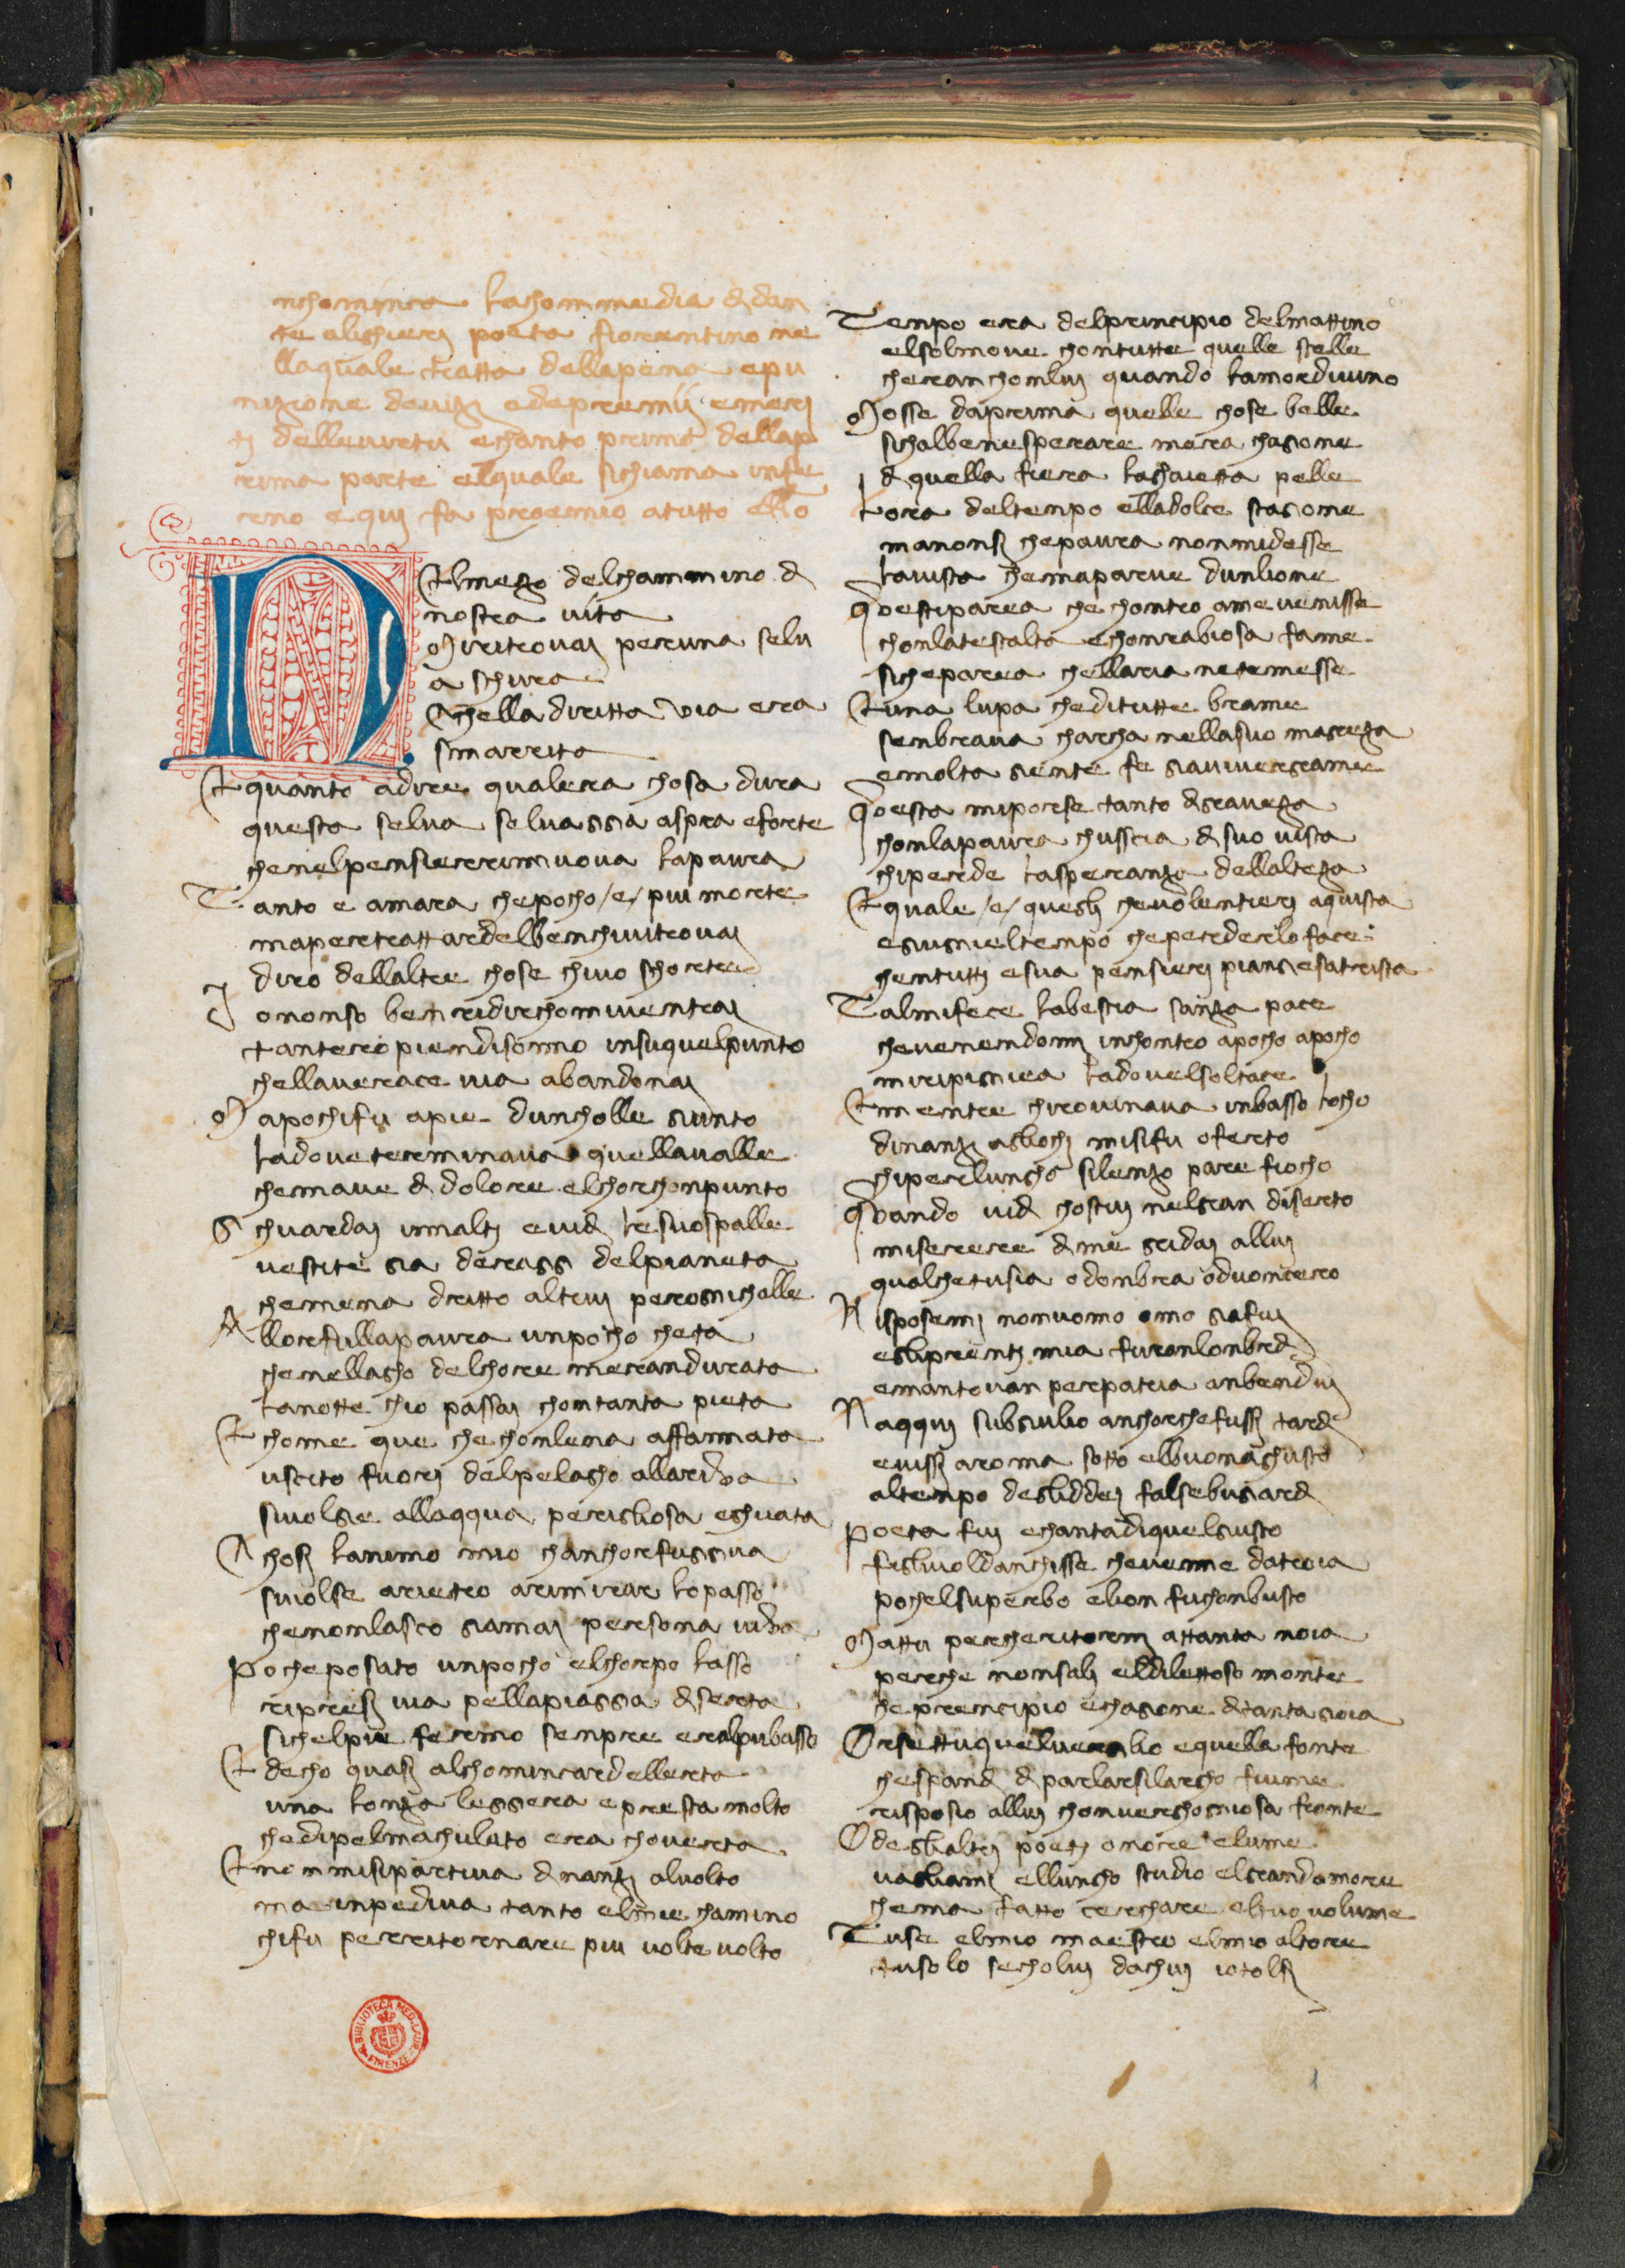 nchomincia lachommedia di dan
te alighieri poeta fiorentino ne
llaquale tratta dellapena epu
nizione deuizi edepremii emeri
ti delleuirtu echanto primo dellap
rima parte elquale sichiama infe
rno e qui fa proemio atutto ello
N
Elmezo delchammino di
nostra uita
Miritrouai peruna selu
a schura
Chella diritta via era
smarrita
Equanto adire qualera chosa dura
questa selua seluaggia aspra eforte
chenelpensierrinnuova lapaura
Tanto e amara chepocho /e/ piu morte
mapertrattardelbenchiuitrouai
diro dellaltre chose chiuo schorte
Io nonso ben ridirchommientrai
tantero piendisonno insuquelpunto
chellauerace uia abandonai
Mapochifu apie duncholle giunto
ladoue terminaua quellaualle
chemaue di dolore elchorchonpunto
Ghuardai inalti euidi lesuospalle
uestite gia deraggi delpianeta
chemena dritto altrui perognichalle
Allorfullapaura unpocho cheta
chenellagho delchore merandurata
lanotte chio passai chontanta pieta
Echome que chechonlena affannata
uscito fuori delpelagho allariva
siuolgie allaqqua perigliosa eghuata
Chosi lanimo mio chanchorfuggiua
siuolse arietro arimirar lopasso
chenonlascio giamai persona uiva
Pocheposato unpocho elchorpo lasso
ripresi uia pellapiaggia diserta
sichelpie fermo sempre eralpiubasso
Edecho quasi alchominciardellerta
una lonza leggera epresta molto
chedipelmachulato era choverta
Enonmisipartiua dinanzi aluolto
ma inpediua tanto elmie chamino
chifu perritornare piu uolte uolto
Tenpo era delprincipio delmattino
elsolmoue chontutte quelle stelle
cheranchonlui quando lamordiuino
Mosse daprima quelle chose belle
sichalbenesperare mera chagione
di quella fiera laghaietta pelle
Lora deltenpo elladolce stagione
manonsi chepaura nonmidesse
lauista chemaparue dunlione
Questiparea che chontro ame uenisse
chonlatestalta echonrabiosa fame
sicheparea chellaria netemesse
Euna lupa cheditutte brame
senbraua charcha nellasuo magreza
emolta giente fe giauiuergrame
Questa miporse tanto digraueza
chonlapaura chusscia di suo uista
chiperde lasperanza dellalteza
Equale /e/ quegli cheuolentieri aquista
egiugnieltenpo cheperderloface
chentutti esua pensieri piangiesatrista
Talmifece labestia sanza pace
cheuenendomi inchontro apocho apocho
miripigniea ladouelsoltace
Ementre chirouinaua inbasso locho
dinanzi agliochi misifu oferto
chiperlungho silenzo pare fiocho
Quando uidi chostui nelgran diserto
miserere di me gridai allui
qualchetusia odonbra oduomcerto
Risposemi nonuomo omo giafui
egliprenti mia furonlonbardi
emantouan perpatria anbendui
Naqqui subgiulio anchorchefussi tardi
euissi aroma sotto elbuonaghusto
altenpo deglidei falsebugiardi
Poeta fui echantadiquelgiusto
figliuoldanchisse cheuenne datroia
pochelsuperbo elion fuchonbusto
Mattu percheritorni attanta noia
perche nonsali eldilettoso monte
che principio echagione ditanta gioia
Orsettuquelueerglio equella fonte
chespandi di parlarsilargho fiume
risposio allui chonuerghogniosa fronte
Odeglialtri poeti onore elume
vagliami ellungho studio elgrandamore
chema fatto cerchare eltuo uolume
Tuse elmio maestro elmio altore
tusolo secholui dachui iotolsi
BIBLIOTECA MED. LAUR. FIRENZE
1